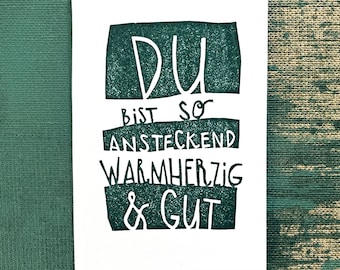 DU
BiST SO
ANSTECKEND
WARMHERZiG
& GUT